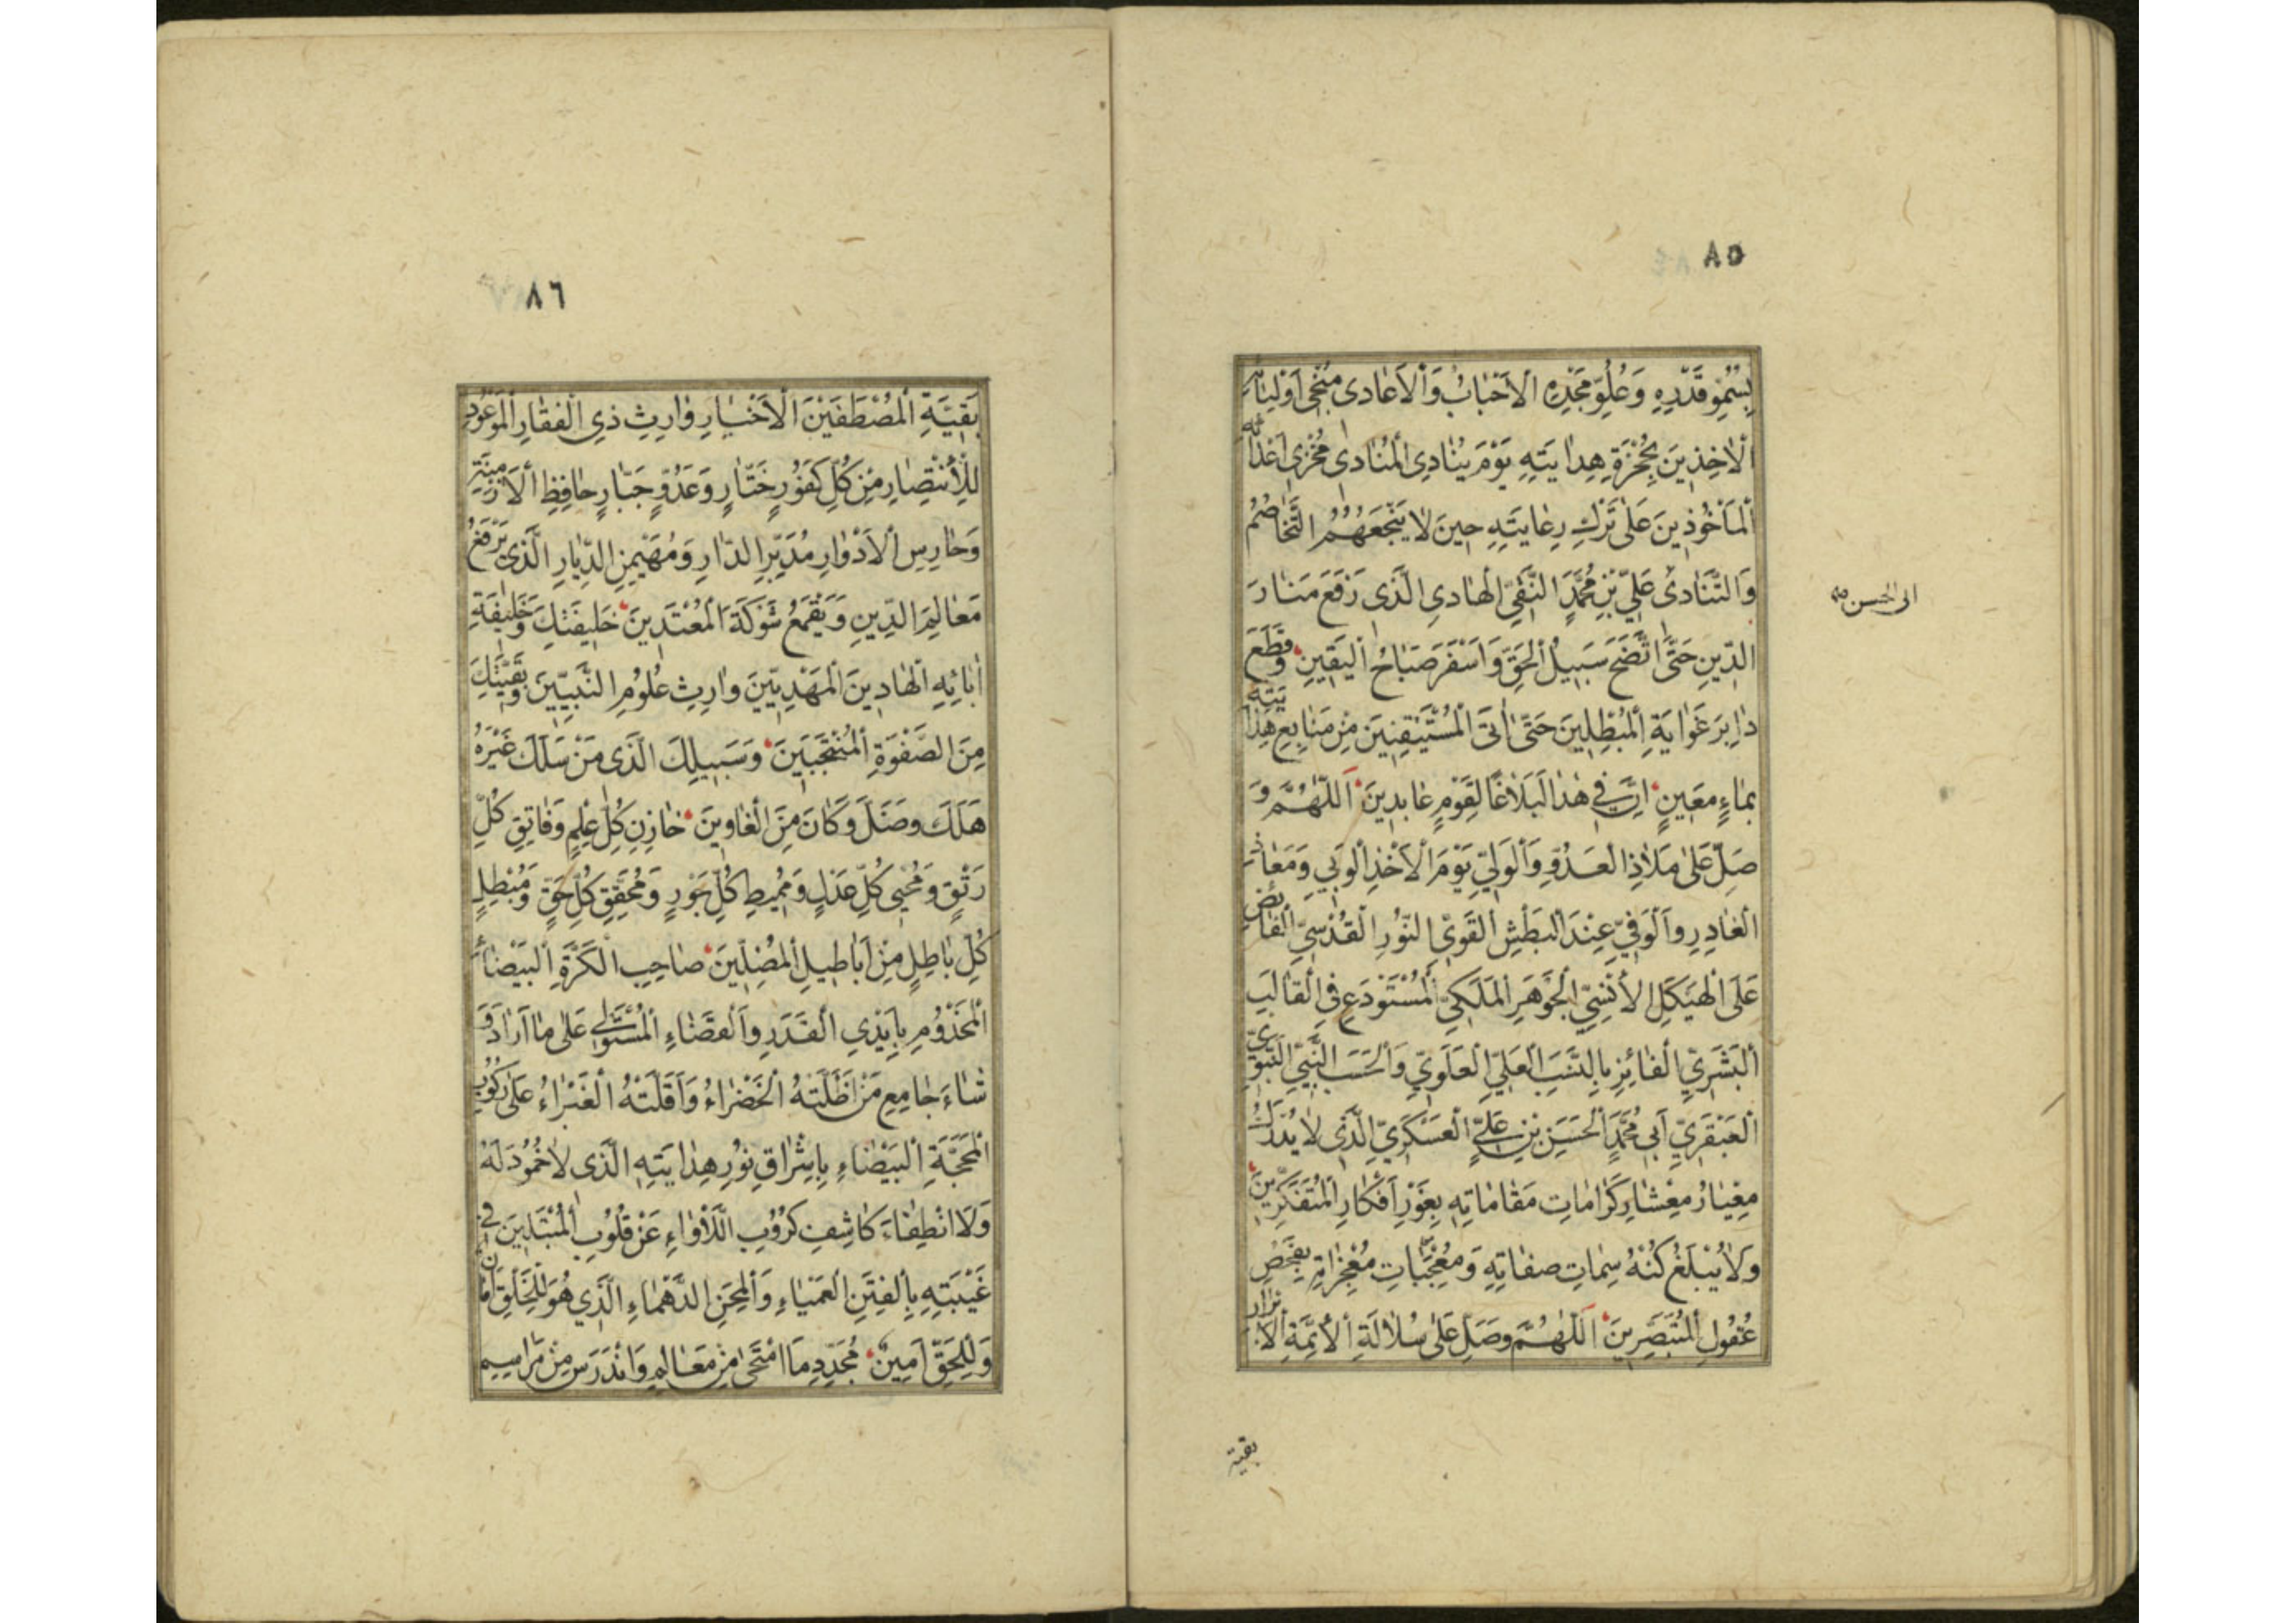 ٨٥
بِسُمُوِّ قَدْرِهِ وَعُلُوِّ مَجْدِهِ الْاَحْبَابُ وَالْاَعَادِى مُنْجِى اَوْلِيَائِهِ
الْاٰخِذِينَ بِحُجْزَةِ هِدَايَتِهِ يَوْمَ يُنَادِى الْمُنَادِى مُخْزِى اَعْدَائِهِ
الْمَأْخُوذِينَ عَلٰى تَرْكِ رِعَايَتِهِ حِينَ لَا يَنْجَعُهُمُ التَّخَاصُمُ
وَالتَّنَادِى عَلِيِّ بْنِ مُحَمَّدٍ النَّقِيِّ الْهَادِى الَّذِى رَفَعَ مَنَارَ
ابى الحسن
الدِّينِ حَتَّى اتَّضَحَ سَبِيلُ الْحَقِّ وَاَسْفَرَ صَبَاحُ الْيَقِينِ وَقَطَعَ
دَابِرَ غَوَايَةِ الْمُبْطِلِينَ حَتّٰى اَتَى الْمُسْتَيْقِنِينَ مِنْ مَنَابِعِ هِدَايَتِهِ
بِمَاءٍ مَعِينٍ اِنَّ فِى هٰذَا لَبَلَاغًا لِقَوْمٍ عَابِدِينَ اَللّٰهُمَّ وَ
صَلِّ عَلٰى مَلَاذِ الْعَدُوِّ وَالْوَلِيِّ يَوْمَ الْاَخْذِ الْوَبِيِّ وَمَعَاذِ
الْغَادِرِ وَالْوَفِيِّ عِنْدَ الْبَطْشِ الْقَوِيِّ النُّورِ الْقُدْسِيِّ الْفَائِضِ
عَلَى الْهَيْكَلِ الْاُنْسِيِّ الْجَوْهَرِ الْمَلَكِيِّ الْمُسْتَوْدَعِ فِى الْقَالَبِ
الْبَشَرِيِّ الْفَائِزِ بِالنَّسَبِ الْعَلِيِّ الْعَلَوِيِّ وَالْحَسَبِ النَّبِيِّ النَّبَوِيِّ
الْعَبْقَرِيِّ اَبِى مُحَمَّدٍ الْحَسَنِ بْنِ عَلِيٍّ الْعَسْكَرِيِّ الَّذِى لَا يُدْرَكُ
مِعْيَارُ مِعْشَارِ كَرَامَاتِ مَقَامَاتِهِ بِغَوْرِ اَفْكَارِ الْمُتَفَكِّرِينَ
وَلَا يُبْلَغُ كُنْهُ سِمَاتِ صِفَاتِهِ وَمُعْجِبَاتِ مُعْجِزَاتِهِ بِفَحْصِ
عُقُولِ الْمُتَبَصِّرِينَ اَللّٰهُمَّ وَصَلِّ عَلٰى سُلَالَةِ الْاَئِمَّةِ الْاَبْرَارِ
بقية
٨٦
بَقِيَّةِ الْمُصْطَفَيْنَ الْاَخْيَارِ وَارِثِ ذِى الْفَقَارِ الْمَوْعُودِ
لِلْاِنْتِصَارِ مِنْ كُلِّ كَفُورٍ خَتَّارٍ وَعَدُوٍّ جَبَّارٍ حَافِظِ الْاَزْمِنَةِ
وَحَارِسِ الْاَدْوَارِ مُدَبِّرِ الدَّارِ وَمُهَيْمِنِ الدِّيَارِ الَّذِى يَرْفَعُ
مَعَالِمَ الدِّينِ وَيَقْمَعُ شَوْكَةَ الْمُعْتَدِينَ خَلِيفَتِكَ وَخَلِيفَةِ
اٰبَائِهِ الْهَادِينَ الْمَهْدِيِّينَ وَارِثِ عُلُومِ النَّبِيِّينَ وَبَقِيَّتِكَ
مِنَ الصَّفْوَةِ الْمُنْتَجَبِينَ وَسَبِيلِكَ الَّذِى مَنْ سَلَكَ غَيْرَهُ
هَلَكَ وَضَلَّ وَكَانَ مِنَ الْغَاوِينَ خَازِنِ كُلِّ عِلْمٍ وَفَاتِقِ كُلِّ
رَتْقٍ وَمُحْيِى كُلِّ عَدْلٍ وَمُمِيطِ كُلِّ جَوْرٍ وَمُحَقِّقِ كُلِّ حَقٍّ وَمُبْطِلِ
كُلِّ بَاطِلٍ مِنْ اَبَاطِيلِ الْمُضِلِّينَ صَاحِبِ الْكَرَّةِ الْبَيْضَاءِ
الْمَخْدُومِ بِاَيْدِي الْقَدَرِ وَالْقَضَاءِ الْمُسْتَوْلِى عَلٰى مَا اَرَادَ وَ
شَاءَ جَامِعِ مَنْ اَظَلَّتْهُ الْخَضْرَاءُ وَاَقَلَّتْهُ الْغَبْرَاءُ عَلٰى رُكُوبِ
الْمَحَجَّةِ الْبَيْضَاءِ بِاِشْرَاقِ نُورِ هِدَايَتِهِ الَّذِى لَا خُمُودَ لَهُ
وَلَا انْطِفَاءَ كَاشِفِ كُرُوبِ اللَّأْوَاءِ عَنْ قُلُوبِ الْمُبْتَلِينَ فِى
غَيْبَتِهِ بِالْفِتَنِ الْعَمْيَاءِ وَالْمِحَنِ الدَّهْمَاءِ الَّذِي هُوَ لِلْخَلْقِ اَمَانٌ
وَلِلْحَقِّ اَمِينٌ مُجَدِّدِ مَا امْتَحٰى مِنْ مَعَالِمِ وَانْدَرَسَ مِنْ مَرَاسِيمِ